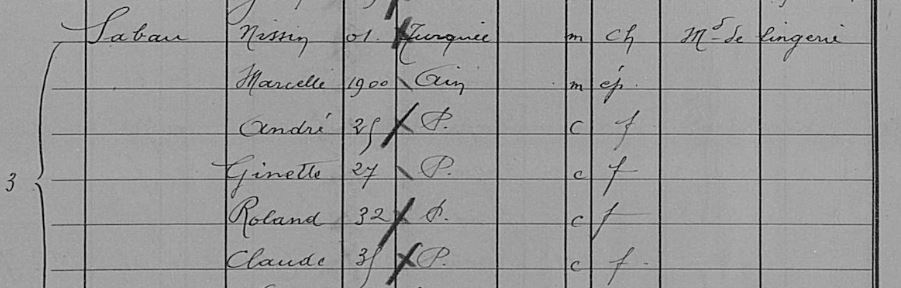 Saban Nissin 01. Turquie m Ch Md de lingerie
Marcelle 1900 Ain m ép.
André 25 P. c f
3 Ginette 27 P. c f
Roland 32 P. c f
Claude 35 P. c f.